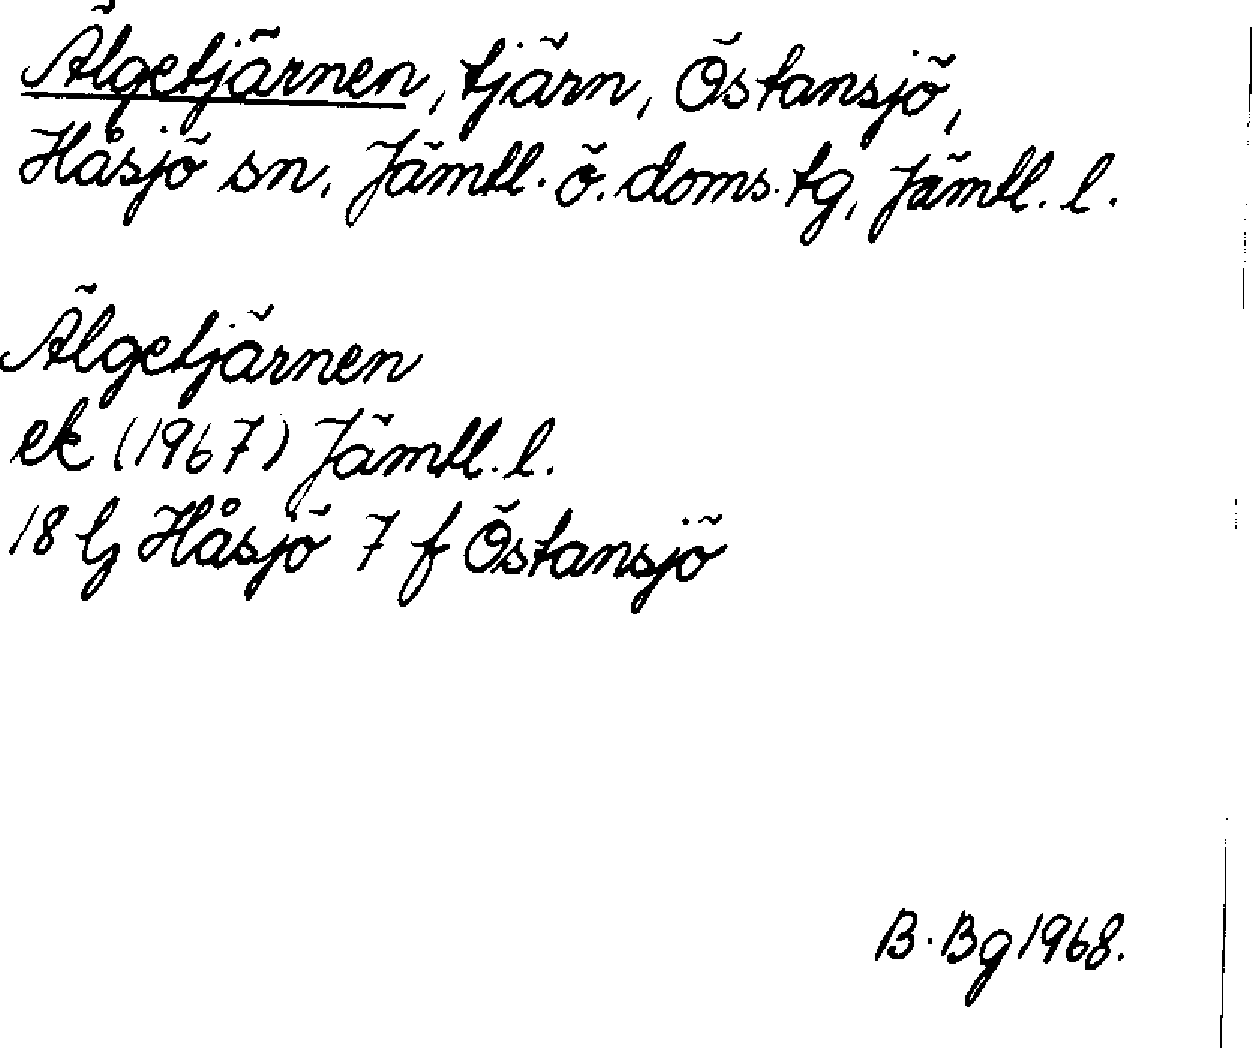 Älgetjärnen, tjärn, Östansjö,
Håsjö sn, Jämtl. ö. doms. tg, Jämtl. l.
Älgetjärnen
ek (1967) Jämtl. l.
18 G Håsjö 7 f Östansjö
B. Bg 1968.